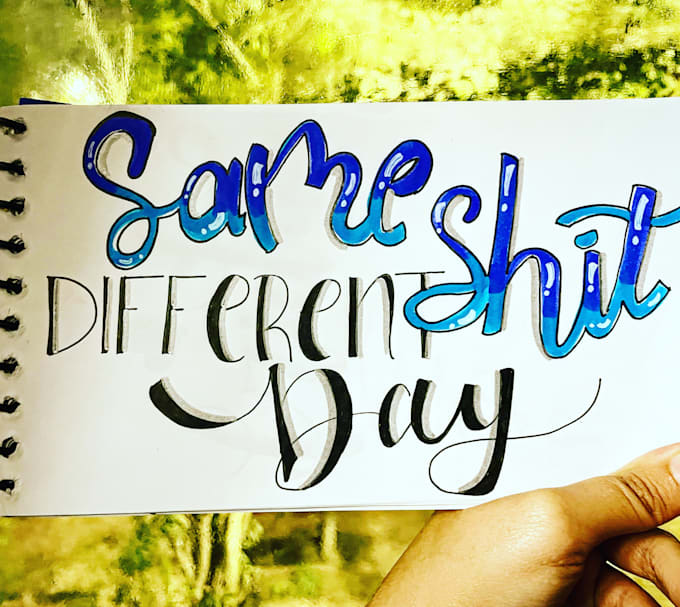 Same Shit
DIFFERENT
Day